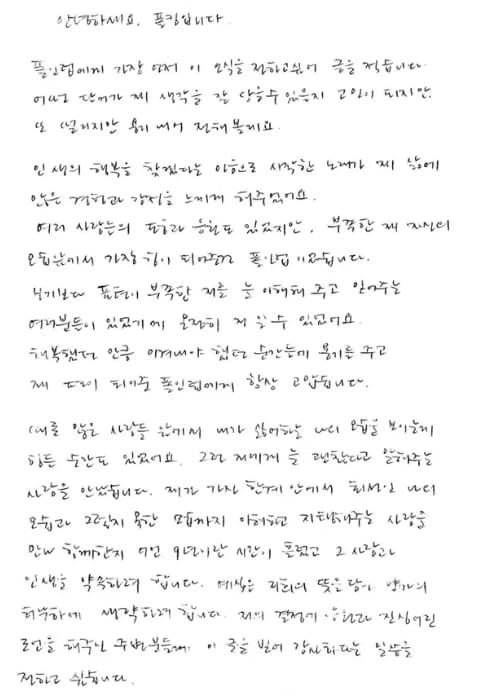 안녕하세요. 폴킴입니다.
폴인럽에게 가장 먼저 이 소식을 전하고싶어 글을 적습니다.
어떤 단어가 제 생각을 잘 담을수 있을지 고민이 되지만.
또 떨리지만 용기 내어 전해볼게요.
인생의 행복을 찾겠다는 마음으로 시작한 노래가 제 삶에
많은 경험과 감정을 느끼게 해주었어요.
여러 사람들의 도움과 응원도 있었지만, 부족한 제 자신의
모습앞에서 가장 힘이 되어준건 폴인럽이었습니다.
보기보다 표현이 부족한 저를 늘 이해해 주고 믿어주는
여러분들이 있었기에 온전히 저 일 수 있었어요.
행복했던 만큼 이겨내야 했던 순간들에 용기를 주고
제 드림 되어준 폴인럽에게 항상 고맙습니다.
때론 많은 사람들 앞에서 내가 싫어하는 나의 모습을 보이는게
힘든 순간도 있었어요. 그런 저에게 늘 괜찮다고 말해주는
사람을 만났습니다. 제가 가진 한계 안에서 최선인 나의
모습과 그렇지 못한 모습까지 이해하고 지탱해주는 사람을
만나 함께한지 어언 9년이란 시간이 흘렀고 그 사람과
인생을 약속하려 합니다. 예식은 저희의 뜻을 담아 양가의
허락하에 생략하려 합니다. 저의 결정에 응원과 진심어린
조언을 해주신 주변분들께 이 글을 빌어 감사하다는 말씀을
전하고 싶습니다.